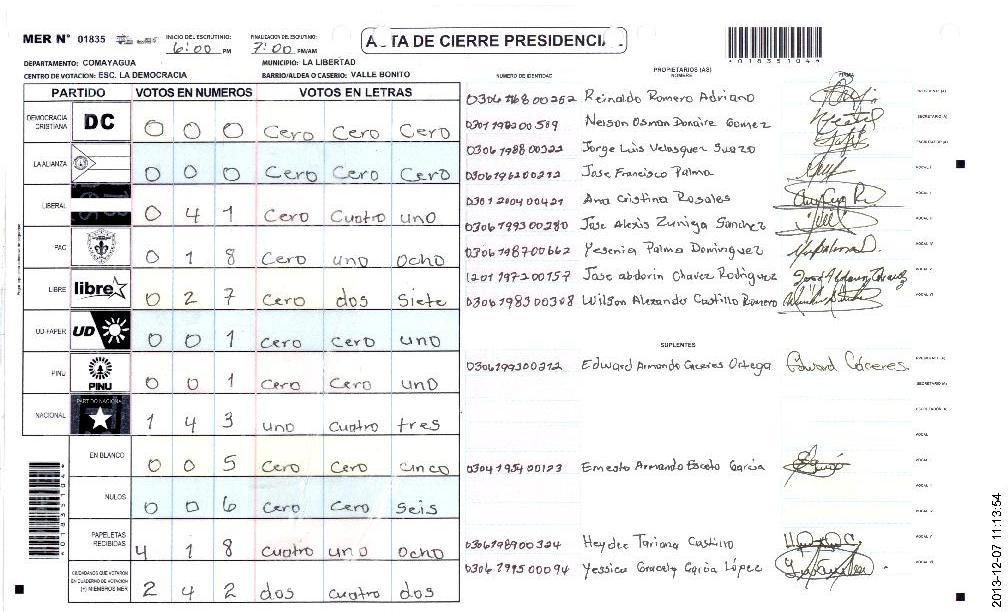 MER N° 01835
INICIO DEL ESCRUTINIO: 6:00 PM
FINALIZACION DEL ESCRUTINIO: 7:00 PM/AM
A TA DE CIERRE PRESIDENCI
*01835104*
DEPARTAMENTO: COMAYAGUA
MUNICIPIO: LA LIBERTAD
CENTRO DE VOTACION: ESC. LA DEMOCRACIA
BARRIO/ALDEA O CASERIO: VALLE BONITO
PARTIDO VOTOS EN NUMEROS VOTOS EN LETRAS
DEMOCRACIA CRISTIANA DC 0 0 0 Cero Cero Cero
LA ALIANZA 0 0 0 Cero Cero Cero
LIBERAL 0 4 1 Cero Cuatro uno
PAC 0 1 8 Cero uno ocho
LIBRE libre 0 2 7 Cero dos Siete
UD-FAPER UD 0 0 1 Cero Cero uno
PINU PINU 0 0 1 Cero Cero uno
NACIONAL PARTIDO NACIONAL 1 4 3 uno cuatro tres
EN BLANCO 0 0 5 Cero Cero cinco
NULOS 0 0 6 Cero Cero seis
PAPELETAS RECIBIDAS 4 1 8 cuatro uno ocho
CIUDADANOS QUE VOTARON EN CUADERNO DE VOTACION (+) MIEMBROS MER 2 4 2 dos cuatro dos
*01835104*
NUMERO DE IDENTIDAD
PROPIETARIOS (AS)
NOMBRE
FIRMA
Reinaldo Romero Adriano
Nelson Osman Donaire Gomez
0306 1988 00322 Jorge Luis Velasquez Suazo
0306196200212 Jose Francisco Palma
0301 2004 00421 Ana Cristina Rosales
0306 1993 00280 Jose Alexis Zuniga Sanchez
0306 1987 00662 Yesenia Palma Dominguez
1201 1972 00157 Jose abdorin Chavez Rodriguez
0306 1983 00308 Wilson Alexando Castillo Romero
SUPLENTES
0306199300212 Edward Armando Caceres Ortega Edward Cáceres
0304 1954 00123 Ernesto Armando Garcia
0306198900324 Heydee Tariana Castillo
Yessica Gracely Garcia López
2013-12-07 11:13:54